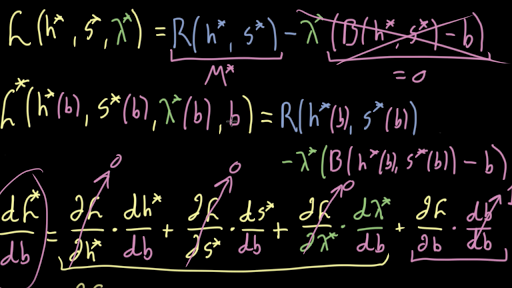 ℒ(h*, s*, λ*) = R(h*, s*) − λ*(B(h*, s*) − b)
M* = 0
ℒ*(h*(b), s*(b), λ*(b), b) = R(h*(b), s*(b))
−λ*(B(h*(b), s*(b)) − b)
0 0 0 1
dℒ*/db = ∂ℒ/∂h* · dh*/db + ∂ℒ/∂s* · ds*/db + ∂ℒ/∂λ* · dλ*/db + ∂ℒ/∂b · db/db